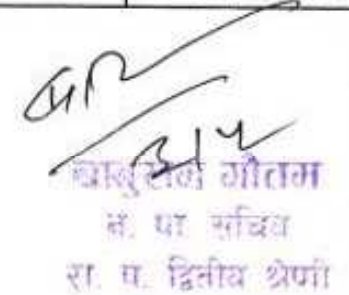 बाबुराम गौतम
न. पा सचिव
रा. प. द्वितीय श्रेणी